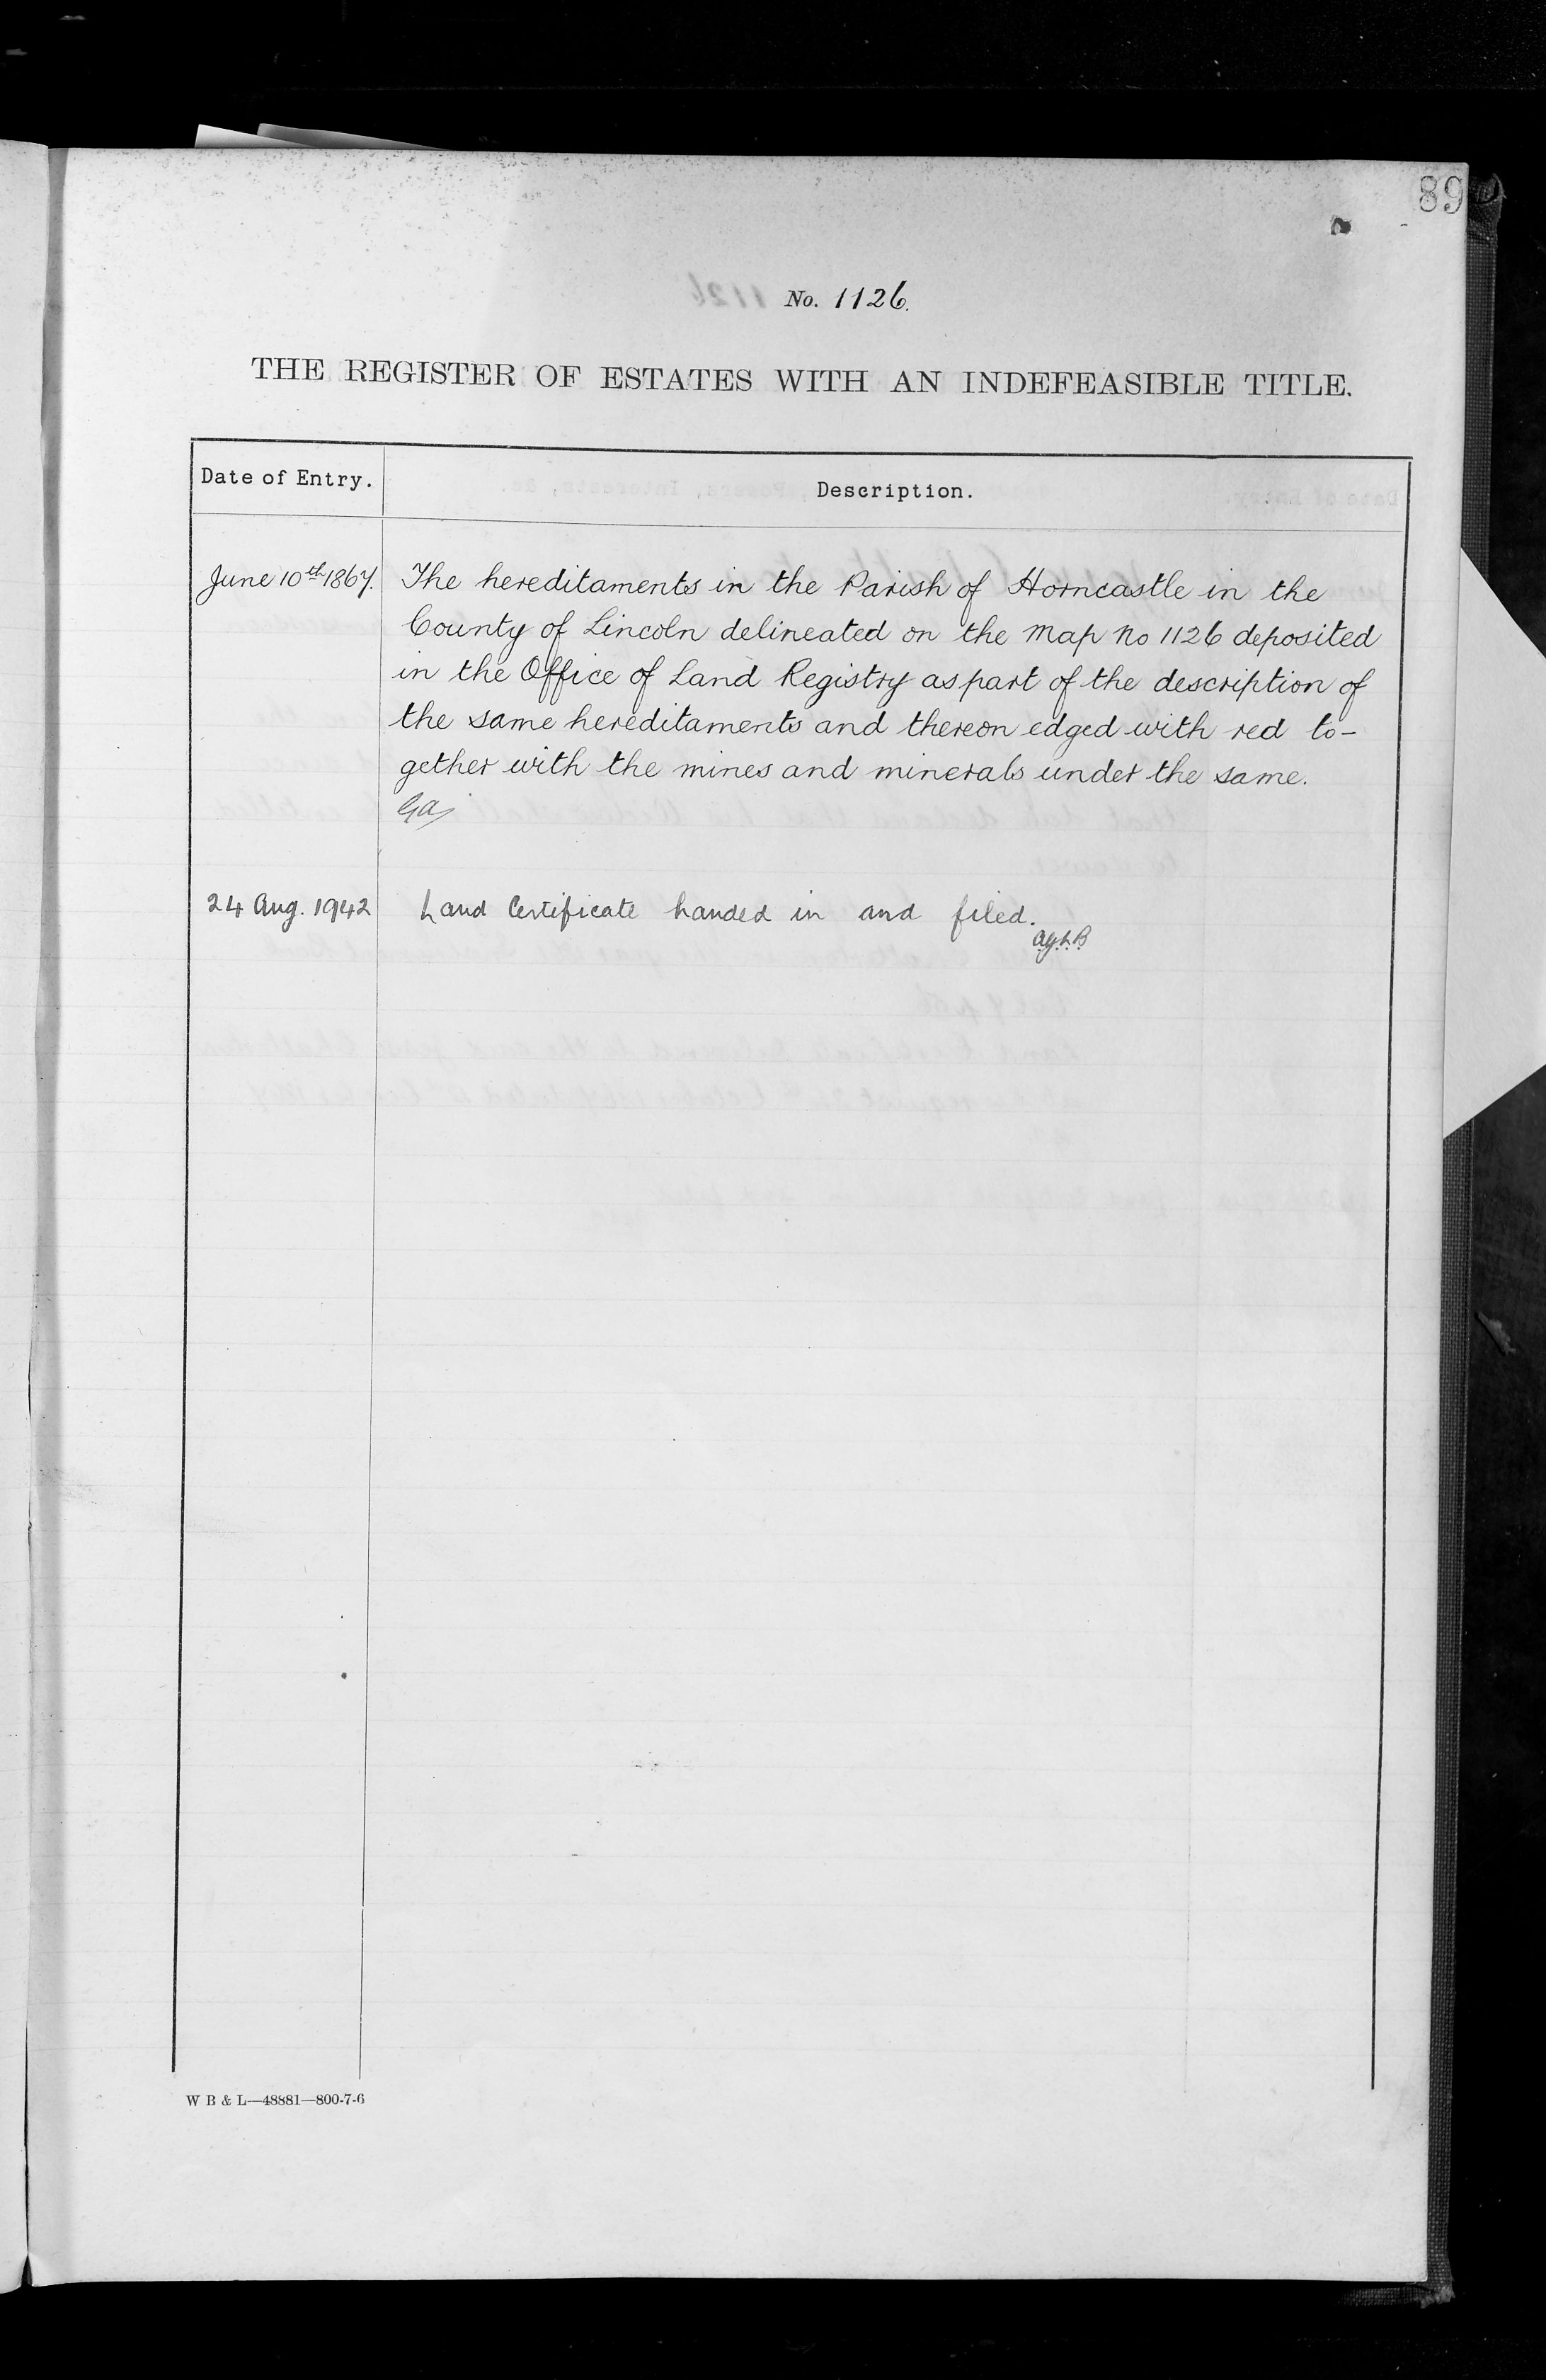 89
No. 1126.
THE REGISTER OF ESTATES WITH AN INDEFEASIBLE TITLE.
Date of Entry. Description.
June 10th 1867. The hereditaments in the Parish of Horncastle in the
County of Lincoln delineated on the Map No 1126 deposited
in the Office of Land Registry as part of the description of
the same hereditaments and thereon edged with red to-
gether with the mines and minerals under the same.
24 Aug. 1942 Land Certificate handed in and filed.
W B & L—48881—800-7-6